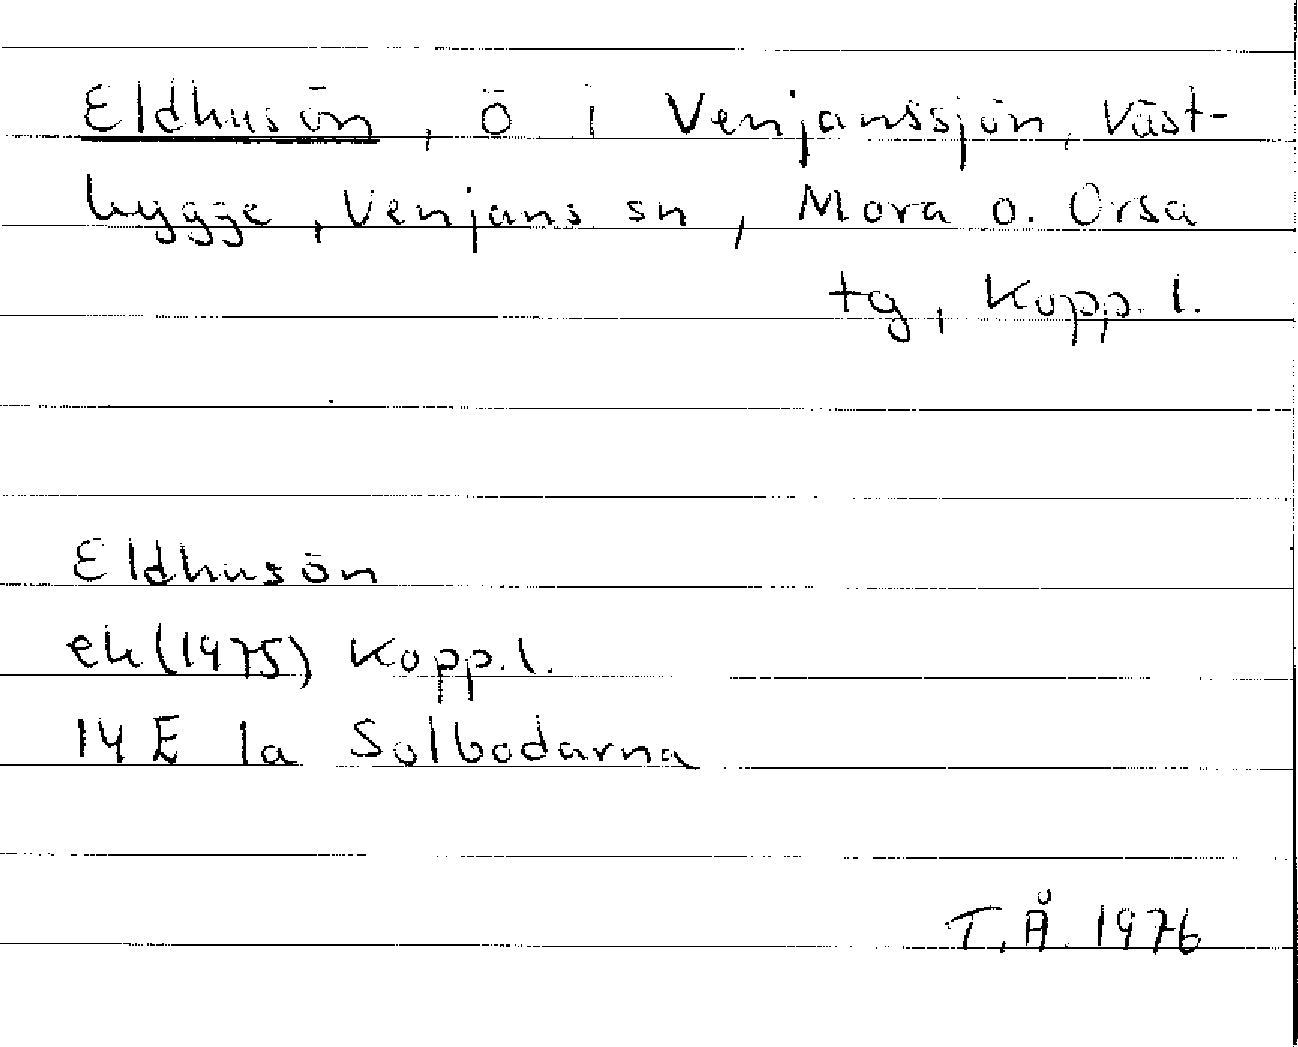 Eldhusön, ö i Venjanssjön, Väst-
bygge, Venjans sn, Mora o. Orsa
tg, Kopp. l.
Eldhusön
ek (1975) Kopp. l.
14 E 1a Solbodarna
T.Å. 1976